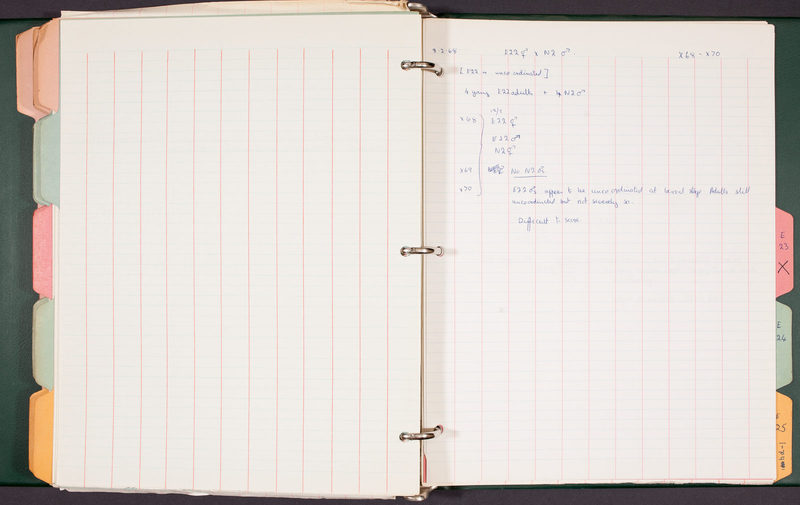 E22 ⚥ x N2 ♂
x68 - x70
[E22 = uncoordinated]
4 young E22 adults + 4 N2 ♂
x68
E22 ⚥
E22 ♂
N2 ⚥
x69 No N2 ♂s
x70 E22 ♂s appear to be uncoordinated at larval stage. Adults still
uncoordinated but not severely so.
Difficult to score
E
23
X
E
24
25